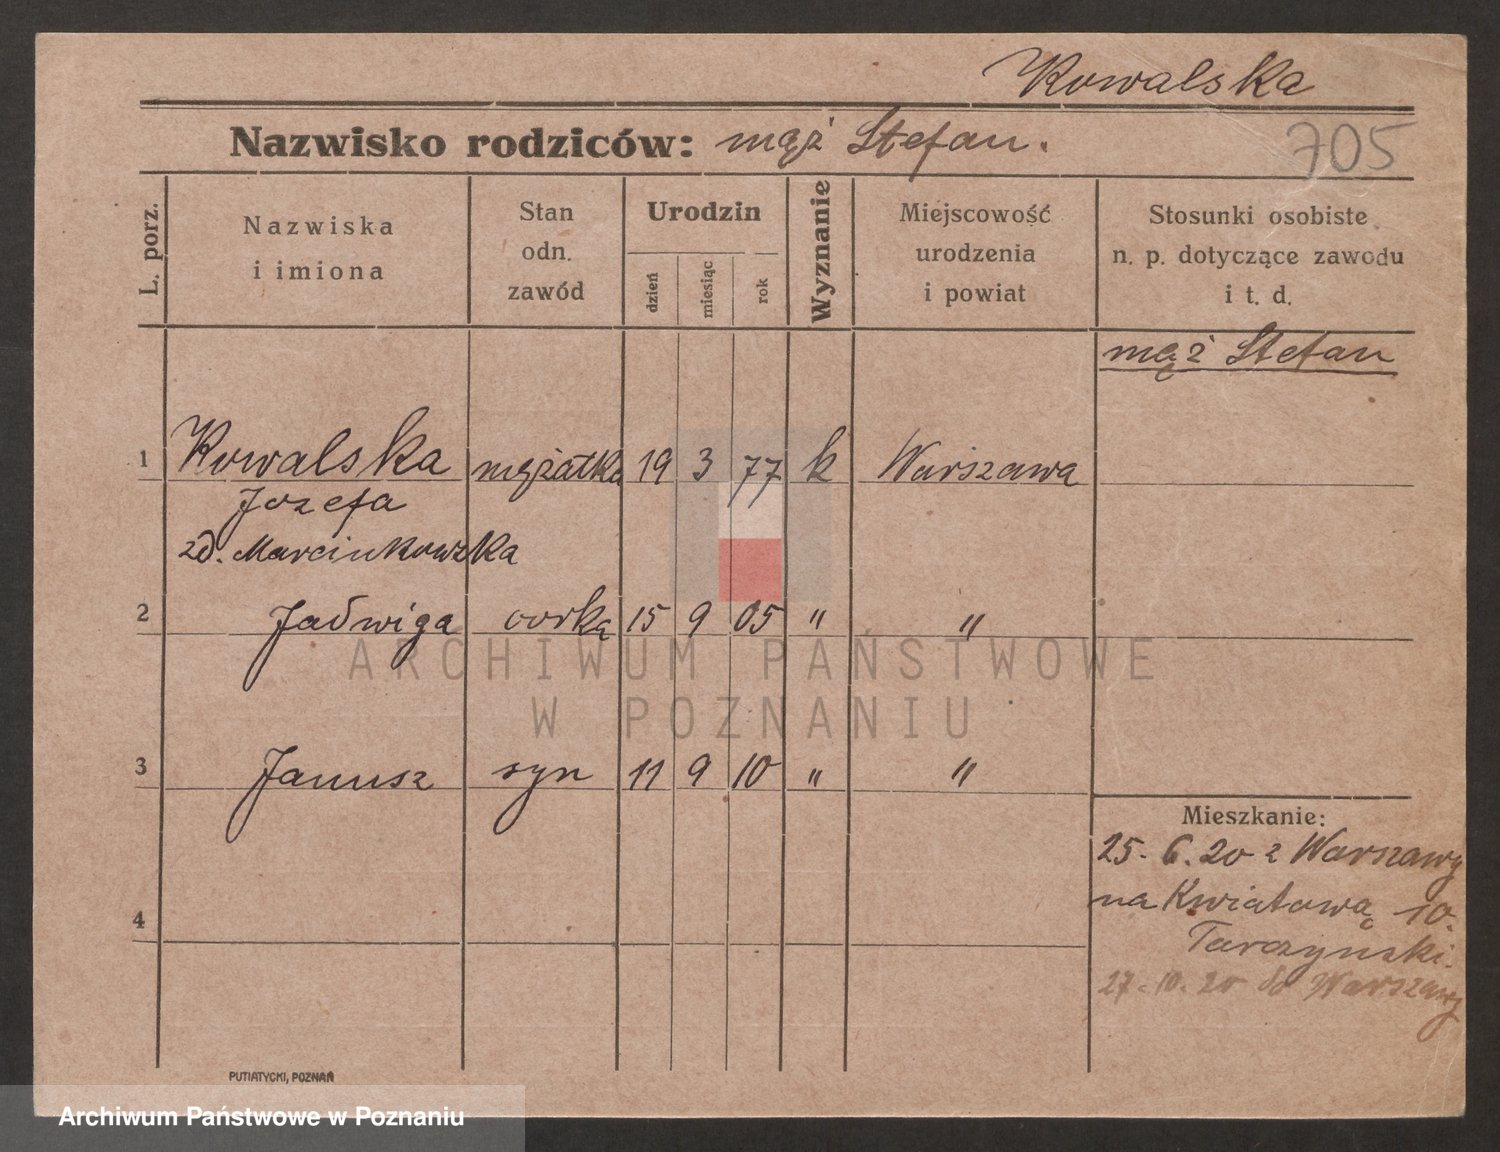 Kowalska
Nazwisko rodziców: mąż Stefan.
705
L. porz.
Nazwiska
i imiona
Stan
odn.
zawód
Urodzin
dzień
miesiąc
rok
Wyznanie
Miejscowość
urodzenia
i powiat
Stosunki osobiste
n. p. dotyczące zawodu
i t. d.
mąż Stefan
1 Kowalska mężatka 19 3 77 k Warszawa
Jozefa
zd. Marcinkowska
2 Jadwiga corka 15 9 05 " "
3 Janusz syn 11 9 10 " "
4
Mieszkanie:
25. 6. 20 z Warszawy
na Kwiatową 10.
Tarczynski.
27. 10. 20 do Warszawy
PUTIATYCKI, POZNAŃ
ARCHIWUM PAŃSTWOWE
W POZNANIU
Archiwum Państwowe w Poznaniu